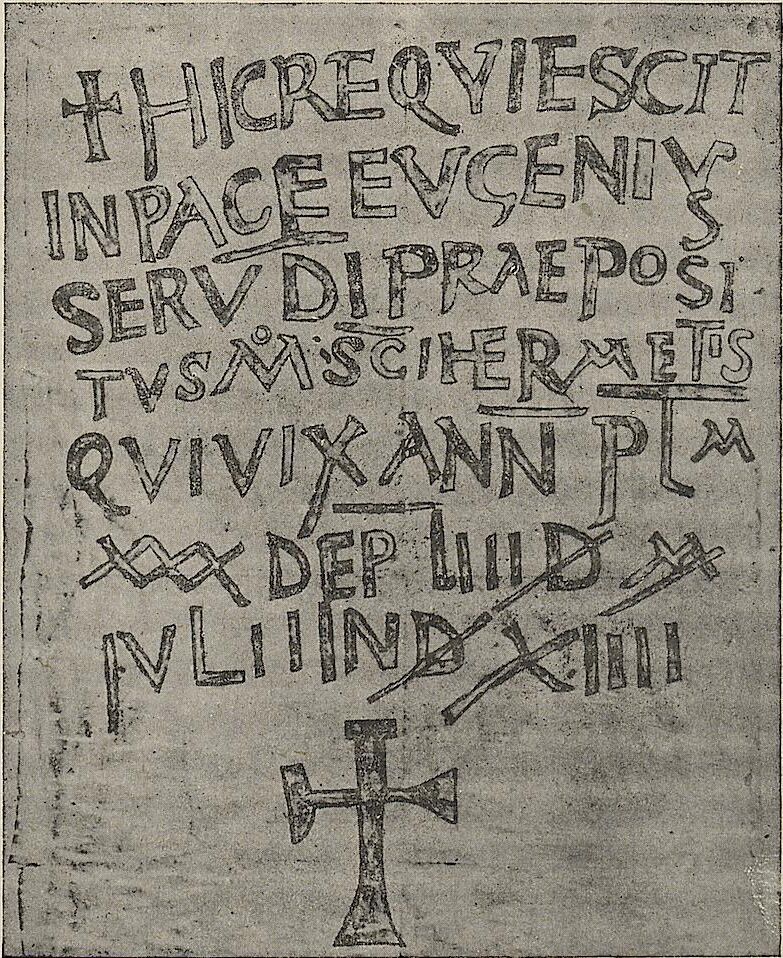 ✝ HIC REQVIESCIT
IN PACE EVGENIVS
SERV DI PRAEPOSI
TVS M̊ SCI HERMETIS
QVI VIXANN PLM
XXX DEP IIII D M
IVLII IND XIIII